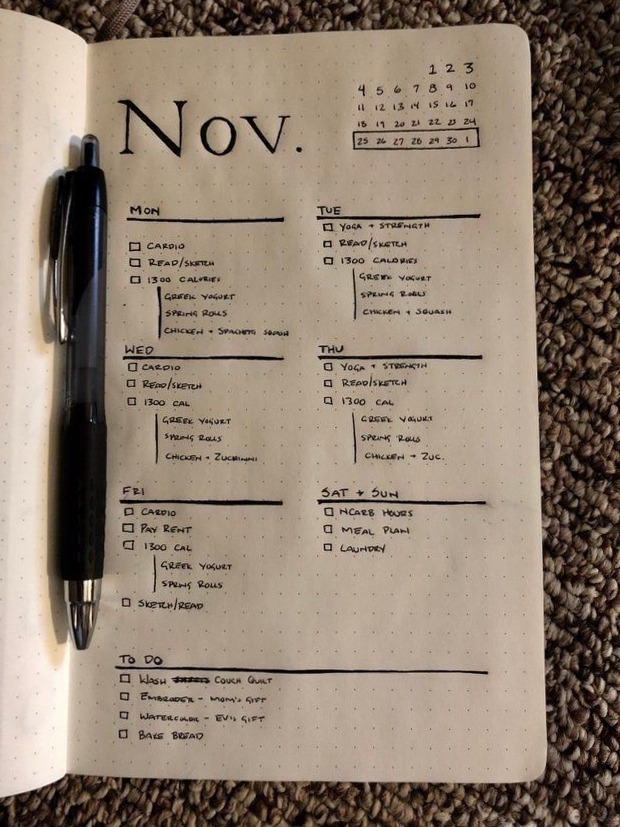 Nov.
1 2 3
4 5 6 7 8 9 10
11 12 13 14 15 16 17
18 19 20 21 22 23 24
25 26 27 28 29 30 1
MON
CARDIO
READ/SKETCH
1300 CALORIES
GREEK YOGURT
SPRING ROLLS
CHICKEN + SPAGHETTI SQUASH
TUE
YOGA + STRENGTH
READ/SKETCH
1300 CALORIES
GREEK YOGURT
SPRING ROLLS
CHICKEN + SQUASH
WED
CARDIO
READ/SKETCH
1300 CAL
GREEK YOGURT
SPRING ROLLS
CHICKEN + ZUCHINNI
THU
YOGA + STRENGTH
READ/SKETCH
1300 CAL
GREEK YOGURT
SPRING ROLLS
CHICKEN + ZUC.
FRI
CARDIO
PAY RENT
1300 CAL
GREEK YOGURT
SPRING ROLLS
SKETCH/READ
SAT + SUN
NCARB HOURS
MEAL PLAN
LAUNDRY
TO DO
WASH COUCH QUILT
EMBROIDER - MOM'S GIFT
WATERCOLOR - EV'S GIFT
BAKE BREAD